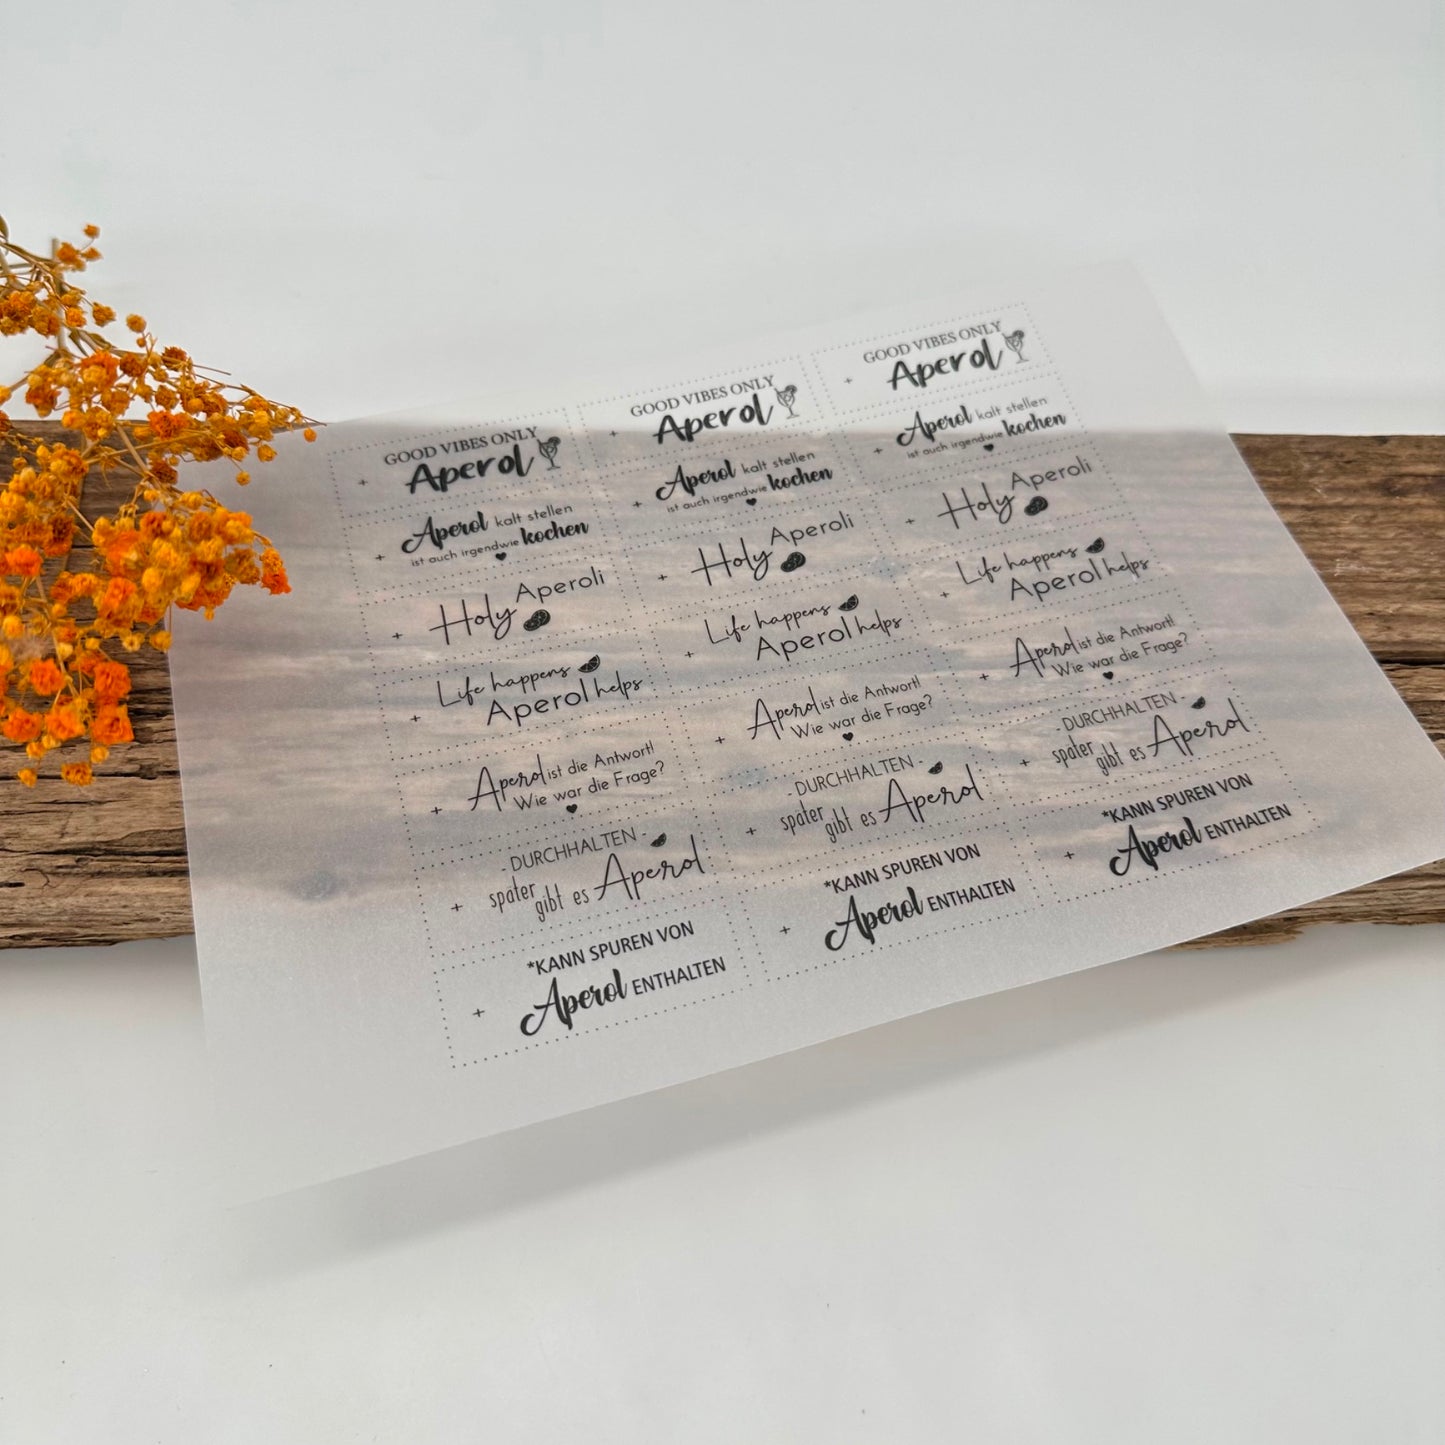 GOOD VIBES ONLY
Aperol
GOOD VIBES ONLY
Aperol
GOOD VIBES ONLY
Aperol
Aperol kalt stellen
ist auch irgendwie kochen
Aperol kalt stellen
ist auch irgendwie kochen
Aperol kalt stellen
ist auch irgendwie kochen
Holy Aperoli
Holy Aperoli
Holy Aperoli
Life happens
Aperol helps
Life happens
Aperol helps
Life happens
Aperol helps
Aperol ist die Antwort!
Wie war die Frage?
Aperol ist die Antwort!
Wie war die Frage?
Aperol ist die Antwort!
Wie war die Frage?
- DURCHHALTEN -
später gibt es Aperol
- DURCHHALTEN -
später gibt es Aperol
- DURCHHALTEN -
später gibt es Aperol
*KANN SPUREN VON
Aperol ENTHALTEN
*KANN SPUREN VON
Aperol ENTHALTEN
*KANN SPUREN VON
Aperol ENTHALTEN